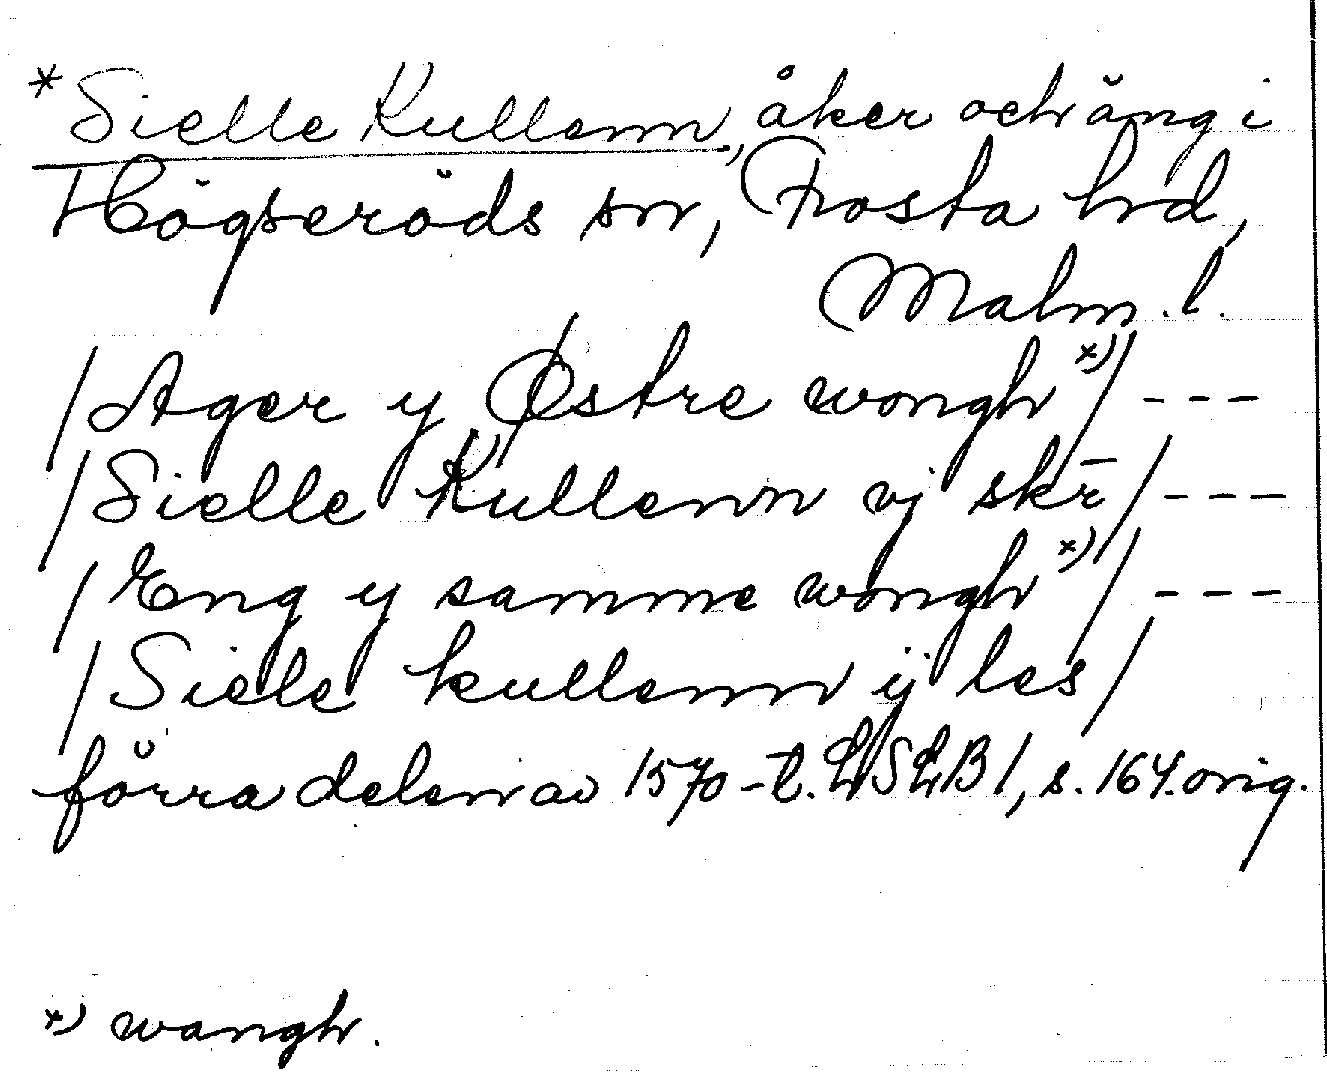 * Sielle Kullenn, åker och äng i
Högseröds sn, Frosta hd,
Malm. l.
/Ager y Østre wongh *)/ ---
/Sielle Kullenn vj skr̄/ ---
/Eng y samme wongh *)/ ---
/Siele kullenn ij les/
förra delen av 1570-t. LSLB 1, s. 164. orig.
*) wangh.